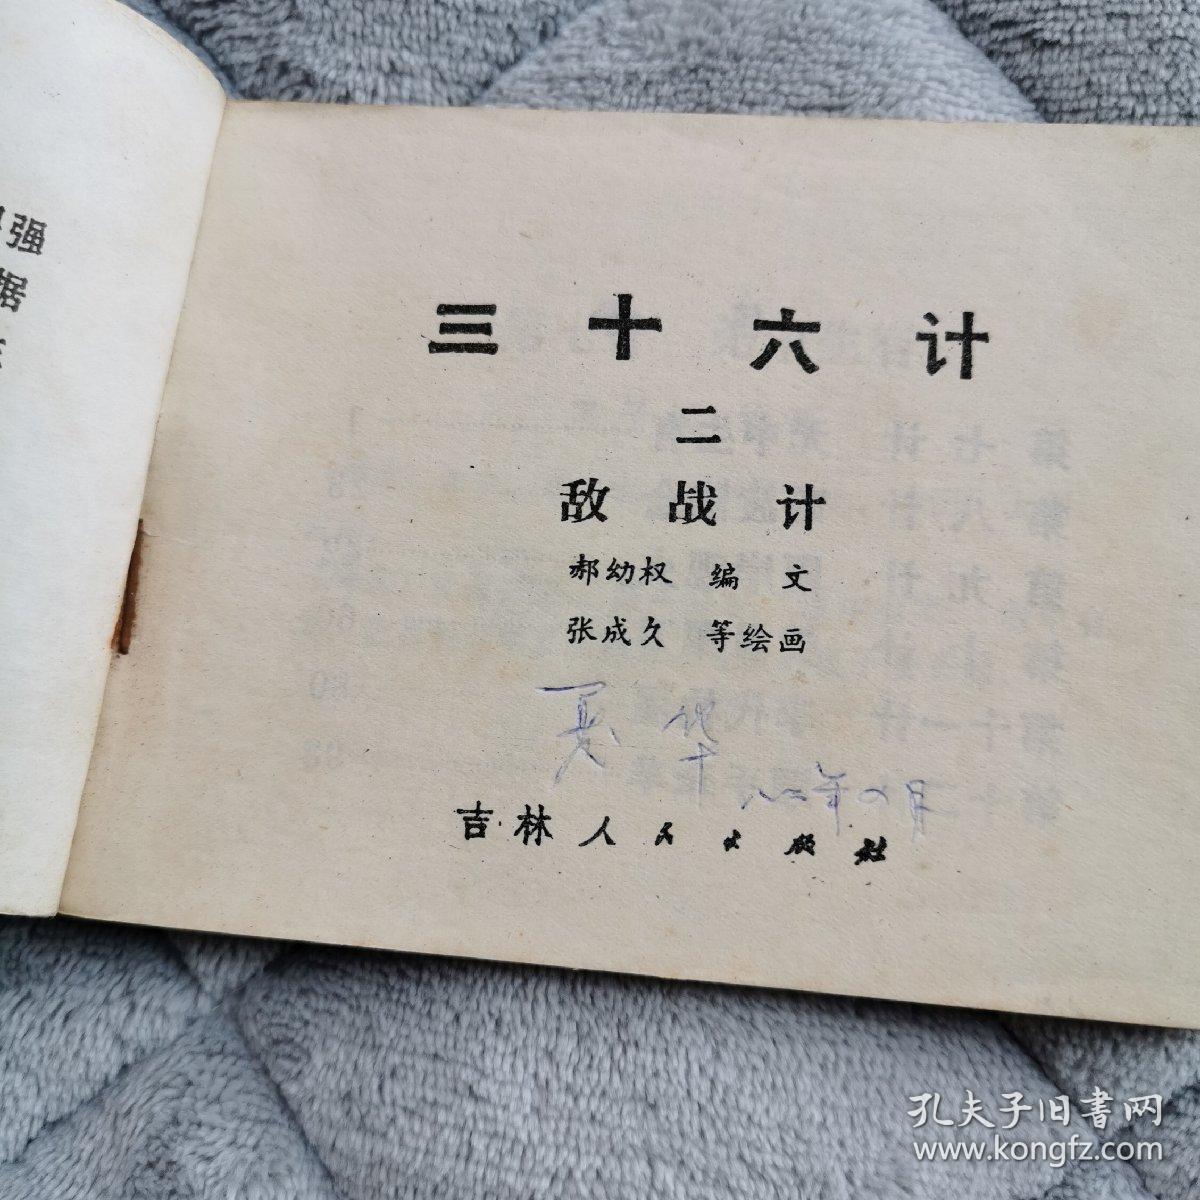 强
据
三十六计
二
敌战计
郝幼权 编文
张成久 等绘画
夏华
八二年の月
吉林人民出版社
孔夫子旧書网
www.kongfz.com